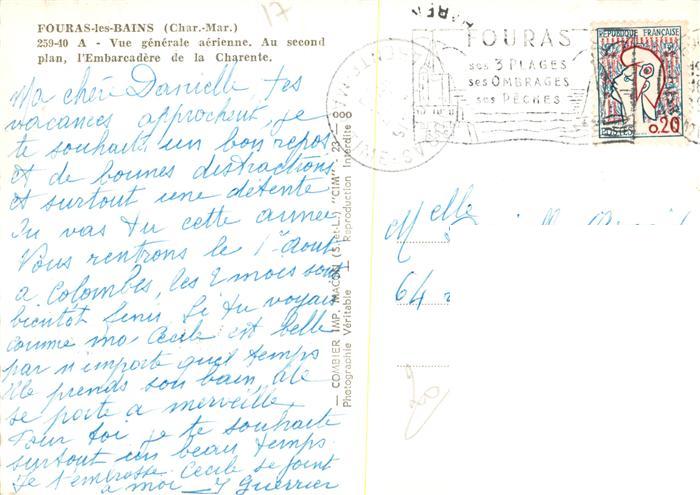 17
FOURAS-les-BAINS (Char.-Mar.)
259-40 A - Vue générale aérienne. Au second
plan, l'Embarcadère de la Charente.
Ma chère Danielle, tes
vacances approchent, je
te souhaite un bon repos
et de bonnes distractions
et surtout une détente
Où vas tu cette année
Nous rentrons le 1er août
a Colombes, les 2 mois sont
bientôt finis. Si tu voyais
comme ma Cécile est belle
par n'importe quel temps
Elle prends son bain, elle
se porte a merveille
Pour toi je te souhaite
surtout un beau temps.
Je t'embrasse Cécile se joint
a moi Y Guerrier
— COMBIER IMP. MACON (S.-et-L.) "CIM" — 23-1-000
Photographie Véritable — Reproduction Interdite
FOURAS
ses 3 PLAGES
ses OMBRAGES
ses PÊCHES
REPUBLIQUE FRANÇAISE
POSTES
0,20
Melle
64
20